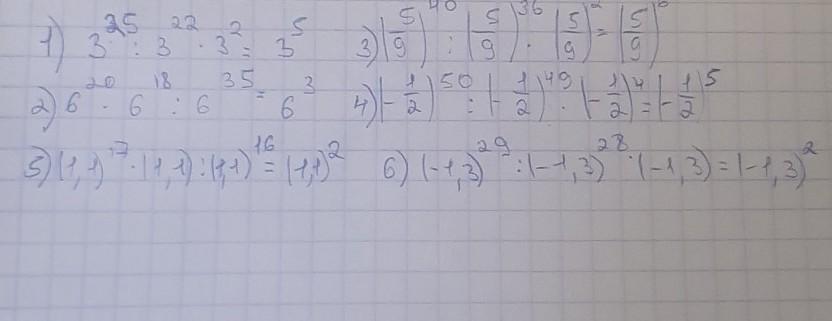 1) 3^25 : 3^22 · 3^2 = 3^5 3) (5/9)^40 : (5/9)^36 · (5/9)^2 = (5/9)^6
2) 6^20 · 6^18 : 6^35 = 6^3 4) (-1/2)^50 : (-1/2)^49 · (-1/2)^4 = (-1/2)^5
5) (1,1)^17 · (1,1) : (1,1)^16 = (1,1)^2 6) (-1,3)^29 : (-1,3)^28 · (-1,3) = (-1,3)^2